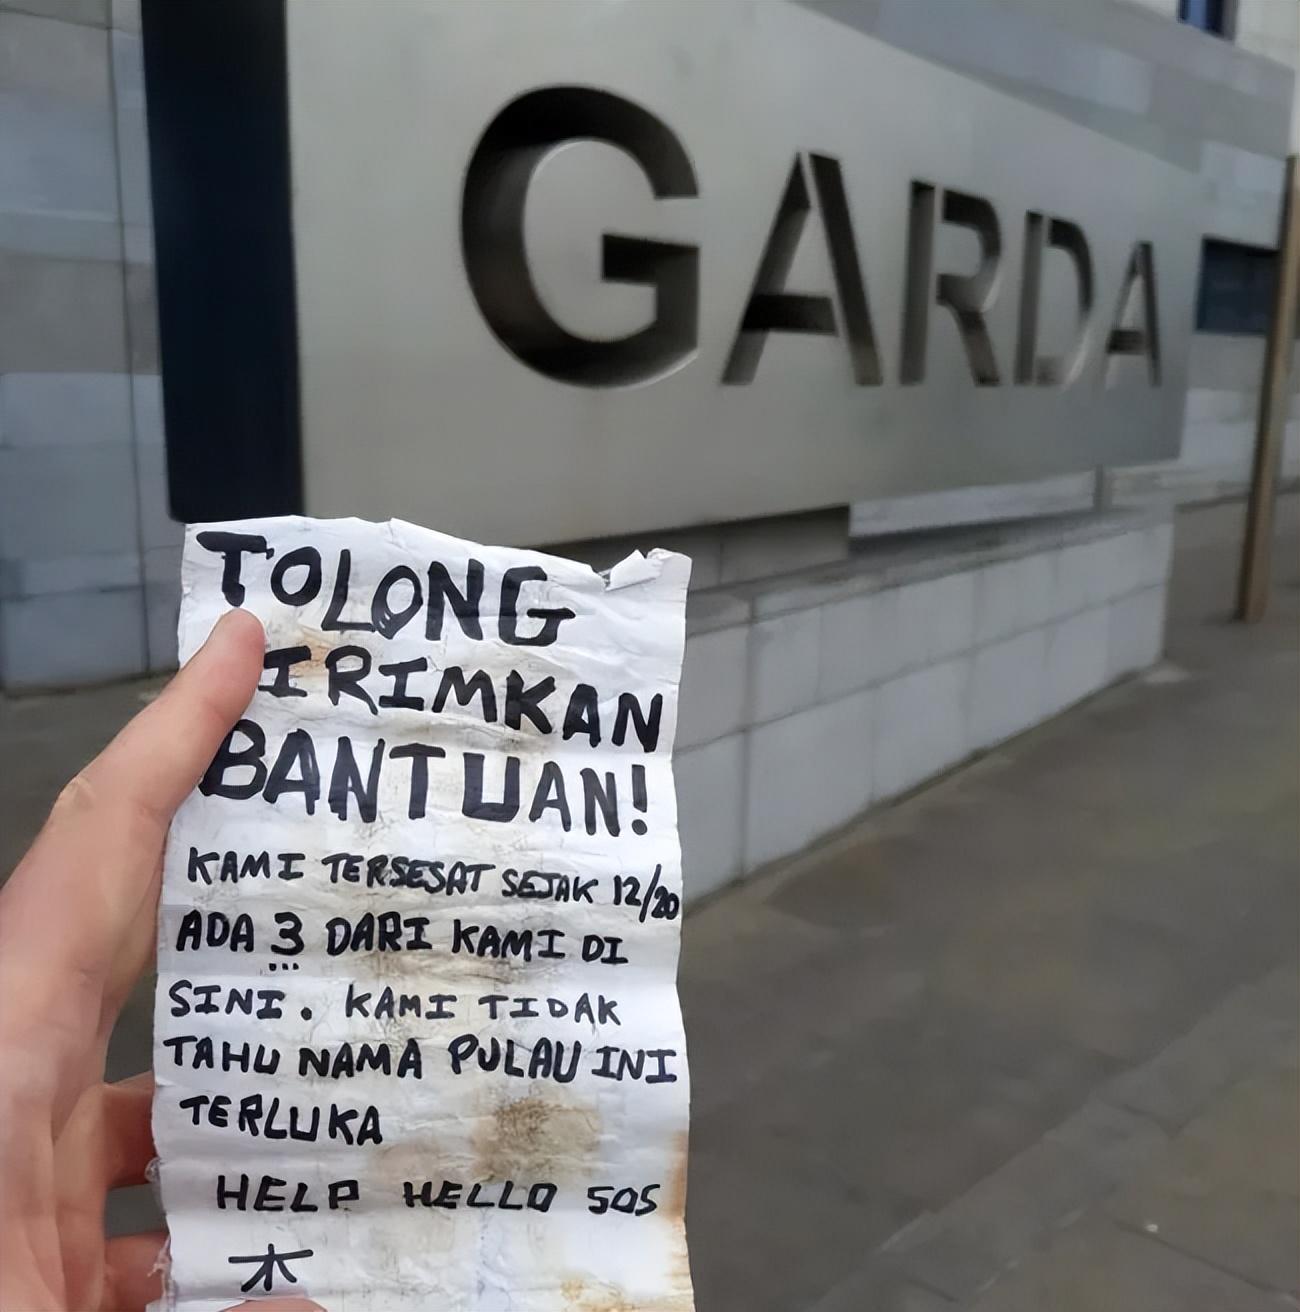 GARDA
TOLONG
IRIMKAN
BANTUAN!
KAMI TERSESAT SEJAK 12/20
ADA 3 DARI KAMI DI
SINI. KAMI TIDAK
TAHU NAMA PULAU INI
TERLUKA
HELP HELLO SOS
木